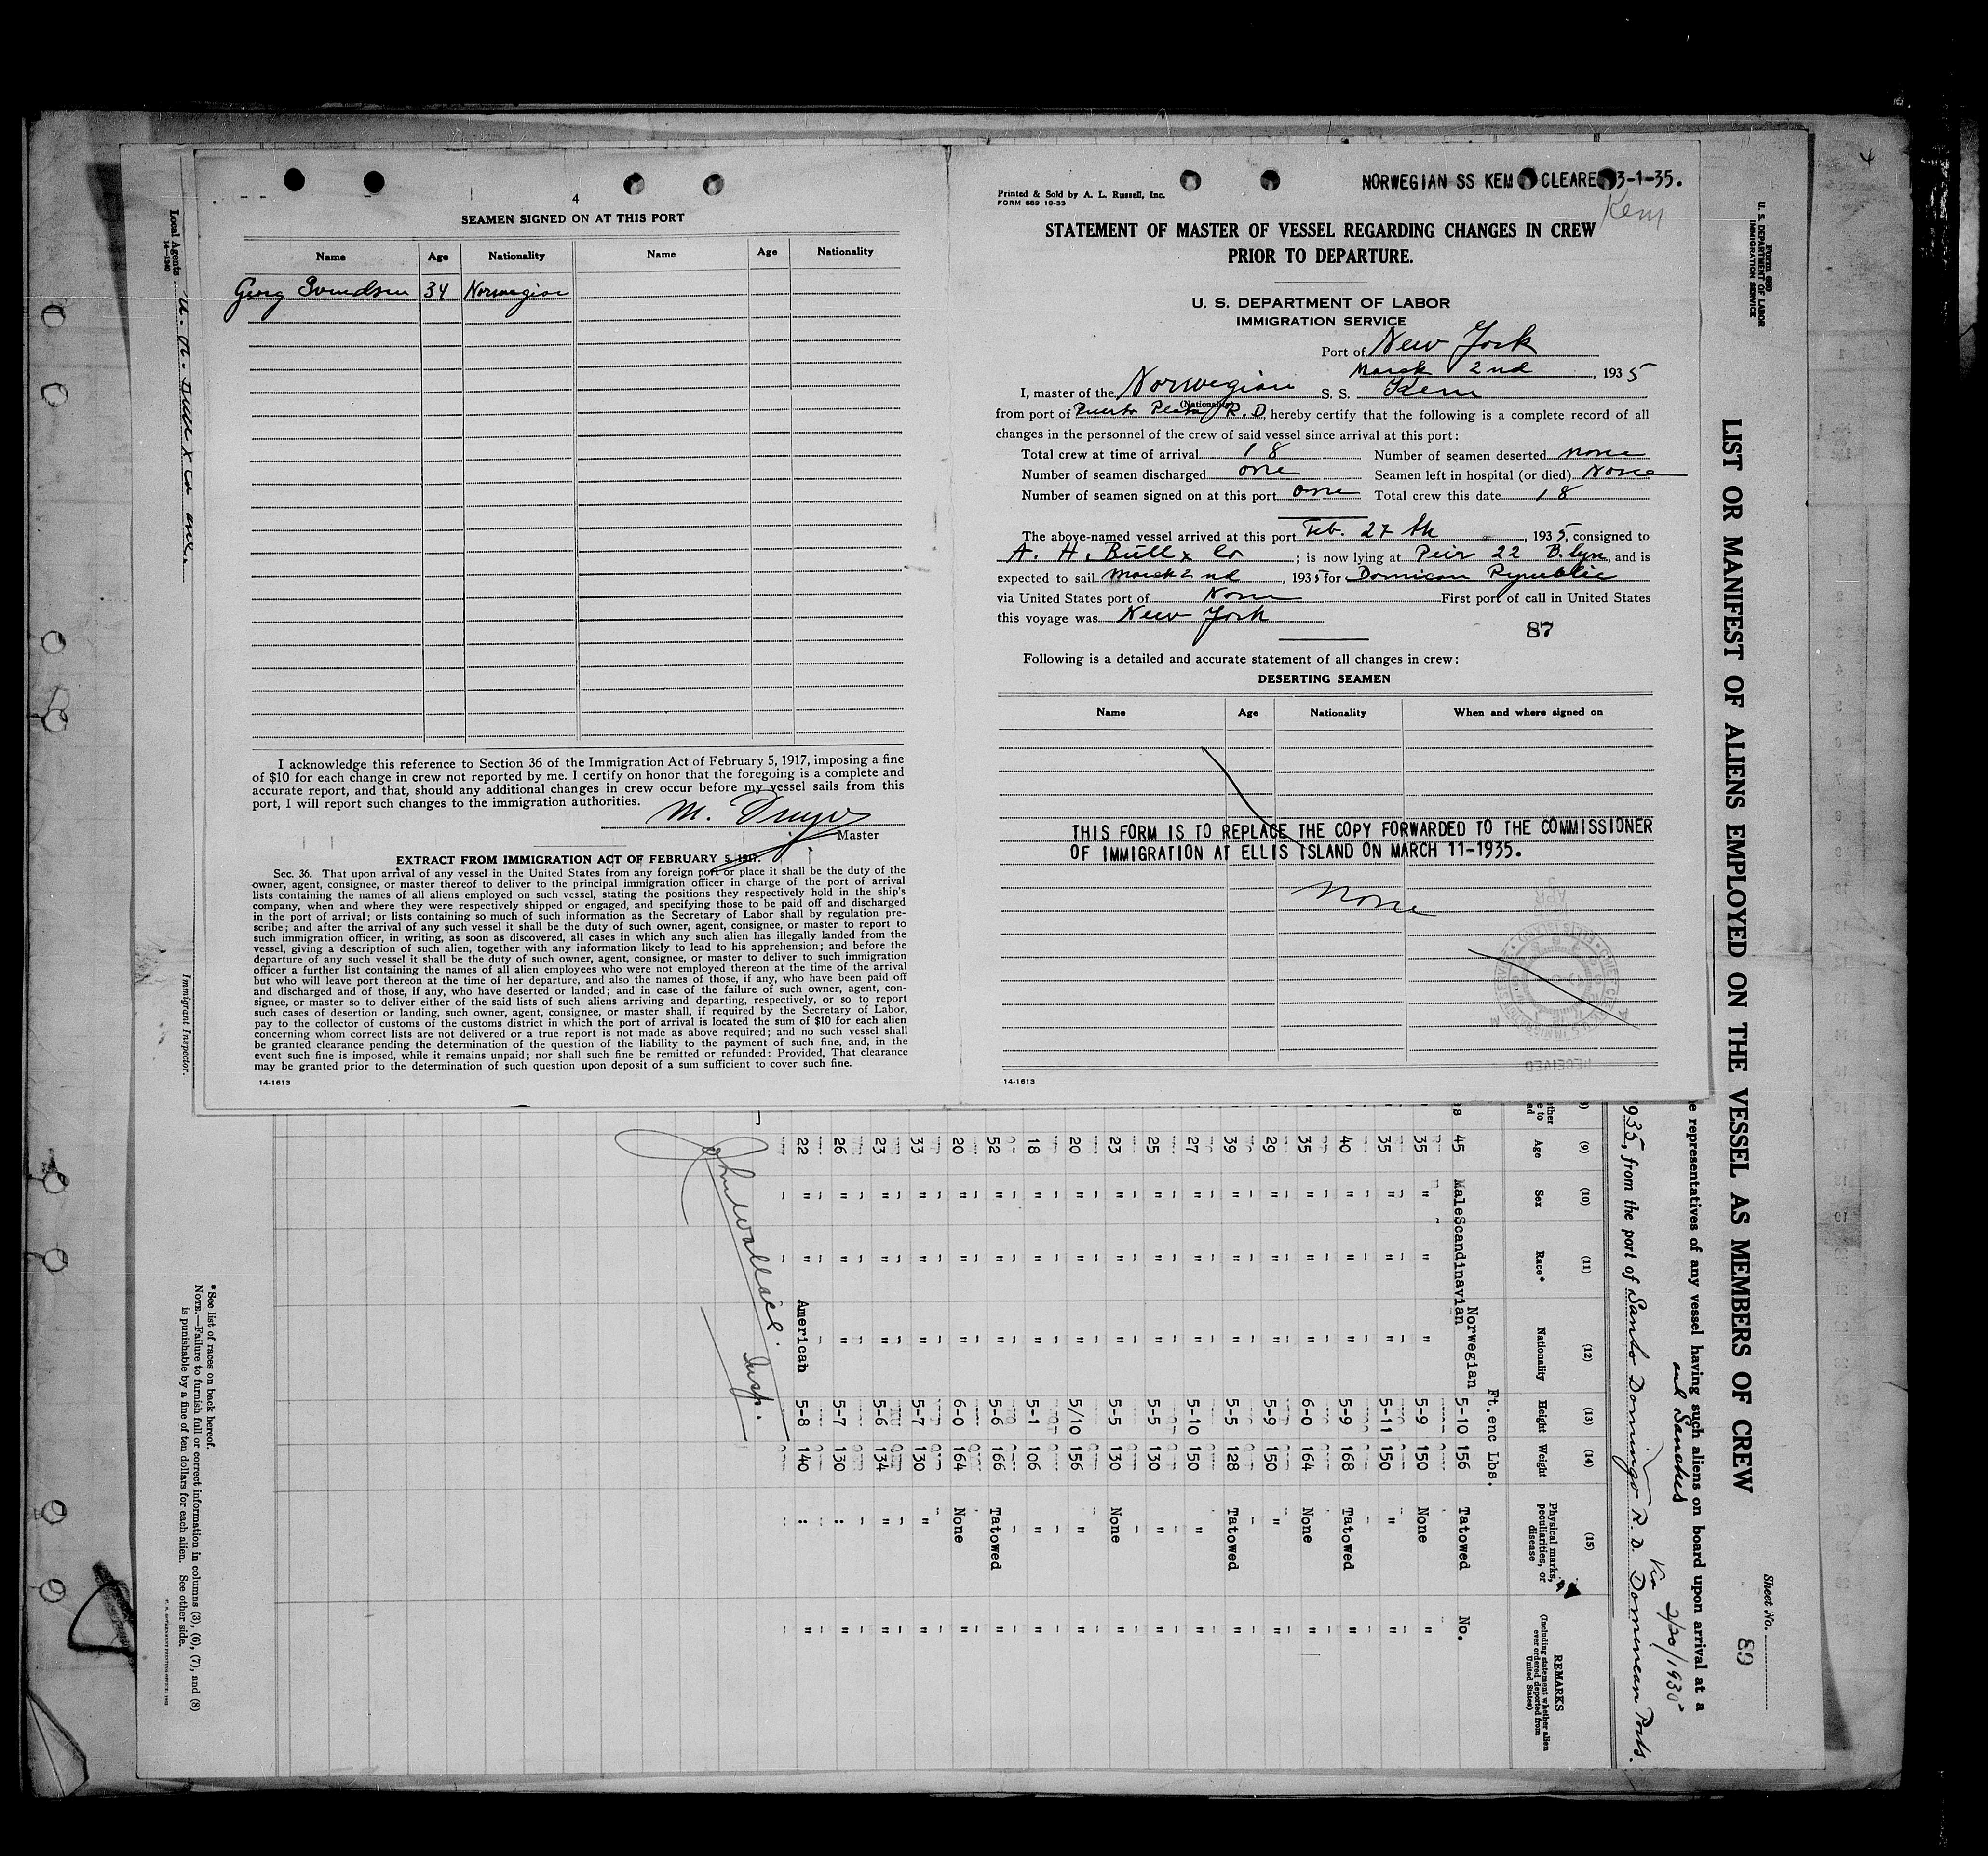 4
SEAMEN SIGNED ON AT THIS PORT
Name Age Nationality Name Age Nationality
Georg Svendsen 34 Norwegian
I acknowledge this reference to Section 36 of the Immigration Act of February 5, 1917, imposing a fine
of $10 for each change in crew not reported by me. I certify on honor that the foregoing is a complete and
accurate report, and that, should any additional changes in crew occur before my vessel sails from this
port, I will report such changes to the immigration authorities.
M.
Master
EXTRACT FROM IMMIGRATION ACT OF FEBRUARY 5, 1917.
Sec. 36. That upon arrival of any vessel in the United States from any foreign port or place it shall be the duty of the
owner, agent, consignee, or master thereof to deliver to the principal immigration officer in charge of the port of arrival
lists containing the names of all aliens employed on such vessel, stating the positions they respectively hold in the ship's
company, when and where they were respectively shipped or engaged, and specifying those to be paid off and discharged
in the port of arrival; or lists containing so much of such information as the Secretary of Labor shall by regulation pre-
scribe; and after the arrival of any such vessel it shall be the duty of such owner, agent, consignee, or master to report to
such immigration officer, in writing, as soon as discovered, all cases in which any such alien has illegally landed from the
vessel, giving a description of such alien, together with any information likely to lead to his apprehension; and before the
departure of any such vessel it shall be the duty of such owner, agent, consignee, or master to deliver to such immigration
officer a further list containing the names of all alien employees who were not employed thereon at the time of the arrival
but who will leave port thereon at the time of her departure, and also the names of those, if any, who have been paid off
and discharged and of those, if any, who have deserted or landed; and in case of the failure of such owner, agent, con-
signee, or master so to deliver either of the said lists of such aliens arriving and departing, respectively, or so to report
such cases of desertion or landing, such owner, agent, consignee, or master shall, if required by the Secretary of Labor,
pay to the collector of customs of the customs district in which the port of arrival is located the sum of $10 for each alien
concerning whom correct lists are not delivered or a true report is not made as above required; and no such vessel shall
be granted clearance pending the determination of the question of the liability to the payment of such fine, and, in the
event such fine is imposed, while it remains unpaid; nor shall such fine be remitted or refunded: Provided, That clearance
may be granted prior to the determination of such question upon deposit of a sum sufficient to cover such fine.
14-1613
Printed & Sold by A. L. Russell, Inc.
FORM 689 10-33
NORWEGIAN SS KEM CLEARED 3-1-35.
Kem
STATEMENT OF MASTER OF VESSEL REGARDING CHANGES IN CREW
PRIOR TO DEPARTURE.
U. S. DEPARTMENT OF LABOR
IMMIGRATION SERVICE
Port of New York
March 2nd, 1935
I, master of the Norwegian S. S. Kem
(Nationality)
from port of Puerto Plata R. D, hereby certify that the following is a complete record of all
changes in the personnel of the crew of said vessel since arrival at this port:
Total crew at time of arrival 18 Number of seamen deserted none
Number of seamen discharged one Seamen left in hospital (or died) None
Number of seamen signed on at this port one Total crew this date 18
The above-named vessel arrived at this port Feb. 27 th, 1935, consigned to
A. H. Bull & Co; is now lying at Peir 22 B.lyn, and is
expected to sail March 2nd, 1935 for Domican Republic
via United States port of None First port of call in United States
this voyage was New York
87
Following is a detailed and accurate statement of all changes in crew:
DESERTING SEAMEN
Name Age Nationality When and where signed on
THIS FORM IS TO REPLACE THE COPY FORWARDED TO THE COMMISSIONER
OF IMMIGRATION AT ELLIS ISLAND ON MARCH 11-1935.
None
RECEIVED
14-1613
Form 680
U. S. DEPARTMENT OF LABOR
IMMIGRATION SERVICE
Sheet No.
89
LIST OR MANIFEST OF ALIENS EMPLOYED ON THE VESSEL AS MEMBERS OF CREW
representatives of any vessel having such aliens on board upon arrival at a
and Sanches Via 2/20/1935
935, from the port of Santo Domingo R. D. Dominican Ports.
(9) (10) (11) (12) (13) (14) (15)
Age Sex Race* Nationality Height Weight Physical marks, peculiarities, or disease REMARKS (Including statement whether alien ever ordered deported from United States)
Ft.enc Lbs.
45 Male Scandinavian Norwegian 5-10 156 Tatowed No.
35 " " " 5-9 150 None "
35 " " " 5-11 150 " "
40 " " " 5-9 168 Tatowed "
35 " " " 6-0 164 None "
29 " " " 5-9 150 " "
39 " " " 5-5 128 Tatowed "
27 " " " 5-10 150 " "
25 " " " 5-5 130 " "
23 " " " 5-5 130 None "
20 " " " 5/10 156 " "
18 " " " 5-1 106 " "
52 " " " 5-6 166 Tatowed "
20 " " " 6-0 164 None "
33 " " " 5-7 130 " "
23 " " " 5-6 134 " "
26 " " " 5-7 130 : "
22 " " American 5-8 140 : "
John Wallace Insp.
Local Agents A. H. Bull & Co
14-1240
Immigrant Inspector.
* See list of races on back hereof.
NOTE.—Failure to furnish full or correct information in columns (3), (6), (7), and (8)
is punishable by a fine of ten dollars for each alien. See other side.